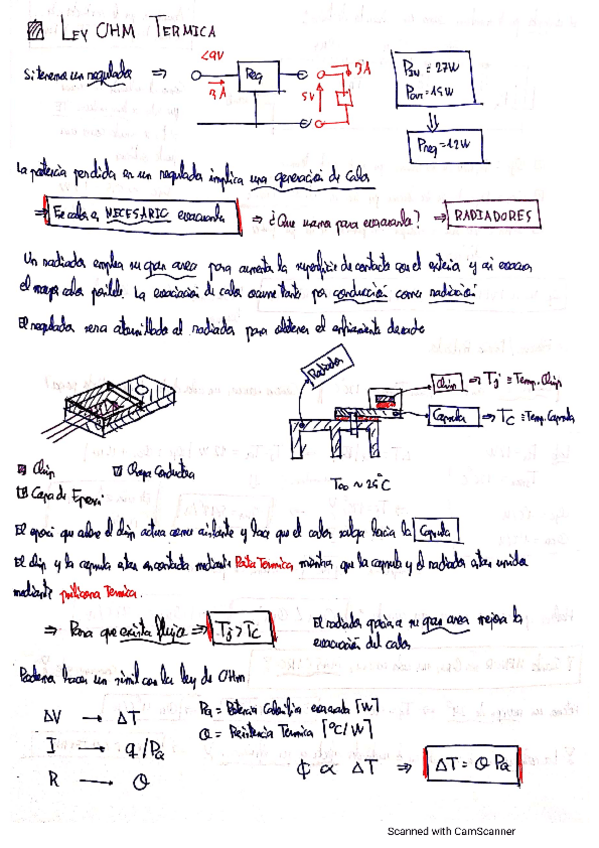 LEY OHM TERMICA
Si tenemos un regulador ⇒
<9V
3A
Reg
5V
3A
P_IN = 27W
P_OUT = 15W
P_REG = 12W
La potencia perdida en un regulador implica una generación de calor
⇒ Ese calor es NECESARIO evacuarlo ⇒ ¿Que usamos para evacuarlo? ⇒ RADIADORES
Un radiador emplea su gran area para aumentar la superficie de contacto con el exterior y asi evacuar
el mayor calor posible. La evacuación de calor ocurre tanto por conducción como radiación
El regulador sera atornillado al radiador para obtener el enfriamiento deseado
Radiador
Chip ⇒ Tj ≡ Temp. Chip
Capsula ⇒ Tc ≡ Temp. Capsula
Chip
Chapa Conductora
T∞ ~ 25°C
Capa de Epoxi
El epoxi que cubre el chip actua como aislante y hace que el calor salga hacia la Capsula
El chip y la capsula estan en contacto mediante Pasta Termica mientras que la capsula y el radiador estan unidos
mediante silicona Termica.
⇒ Para que exista flujo ⇒ Tj > Tc
El radiador gracias a su gran area mejora la
evacuación del calor
Podemos hacer un simil con la ley de OHm.
ΔV → ΔT
I → q/Pq
R → Θ
Pq = Potencia Calorifica evacuada [W]
Θ = Resistencia Termica [°C/W]
¢ ∝ ΔT ⇒ ΔT = Θ Pq
Scanned with CamScanner